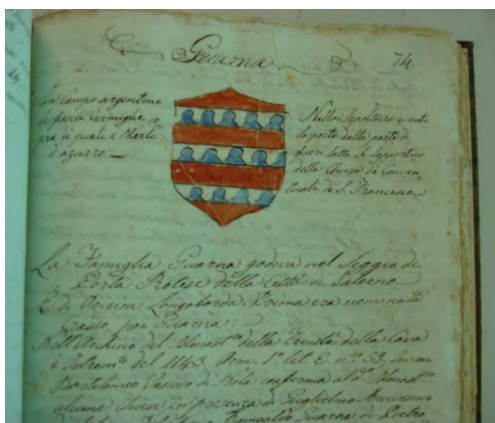 Guarna
74
In Campo argentino
fasce vermiglie, so
pra i quali i Merli
d'azzurro.
Nella Sepoltura avanti
la porta dalla parte di
fuori sotto il Supportico
della Chiesa de' Conven-
tuali di S. Francesco.
La Famiglia Guarna godeva nel Seggio di
Porta Rotese della Città di Salerno.
È di Origine Longobarda. Prima era nominata
poi Guarna:
Nell'Archivio del Monast.º della Trinità della Cava
del 1143. Arm. 1.º lit. E. n.º 39.
Bartolomeo Vescovo di conferma al d.º Monast.º
alcune Chiese in presenza di Guglielmo Arcivescovo
Guarna, di Pietro